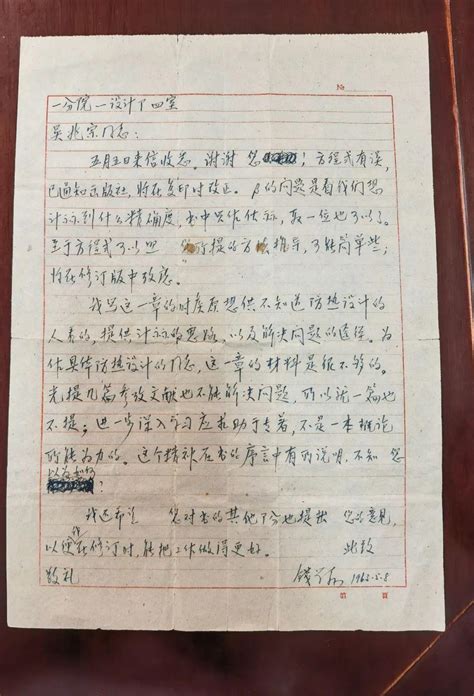 №
一分院一设计下四室
吴兆宗同志：
五月五日来信收悉。谢谢 您；方程式有误，
已通知出版社，将在复印时改正。β的问题是看我们想
计标到什么精确度，书中只作估标，取一位也可以了。
至于方程式可以照 您所提的方法推导，可能简单些；
将在修订版中考虑。
我写这一章的时候原想供不知道防热设计的
人看的，提供计标的思路，以及解决问题的途径。为
作具体防热设计的同志，这一章的材料是很不够的。
光提几篇参考文献也不能解决问题，所以就一篇也
不提；进一步深入学习应求助于专著，不是一本概论
所能为力的。这个精神在书的序言中有所说明，不知 您
以为如何
？
我还希望 您对书的其他部分也提出 您的意见，
以便我在修订时，能把工作做得更好。 此致
敬礼 钱学森 1963.5.8